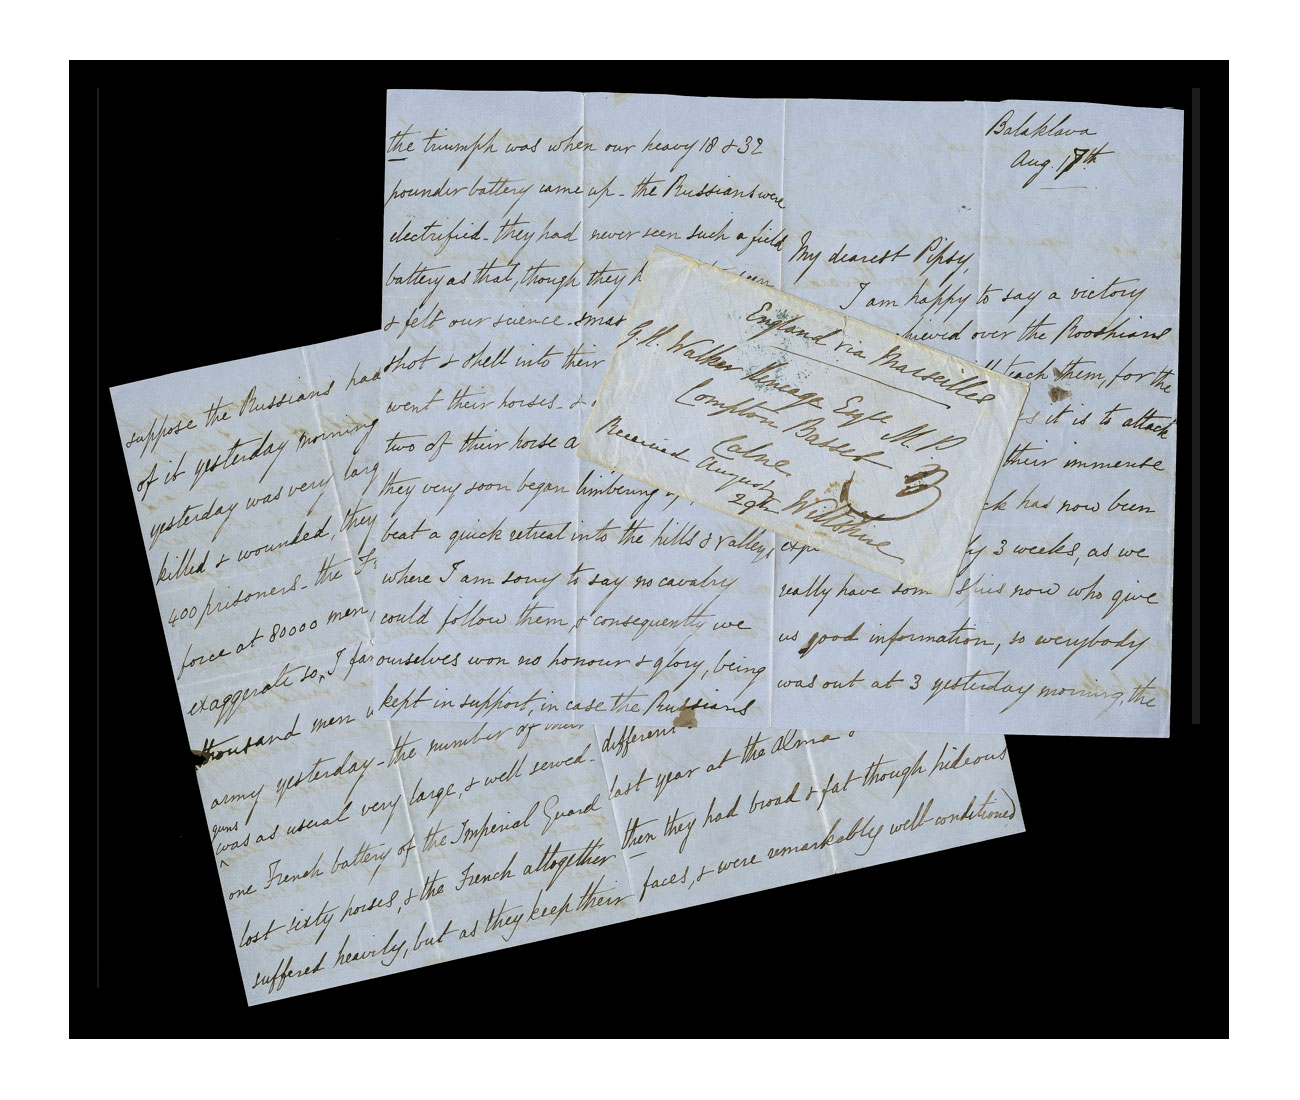 Balaklava
Aug. 17th
My dearest Pipsy,
I am happy to say a victory
hieved over the Rooshians
teach them, for the
s it is to attack
their immense
ck has now been
exp y 3 weeks, as we
really have som now who give
us good information, so everybody
was out at 3 yesterday morning, the
the triumph was when our heavy 18 & 32
pounder battery came up - the Russians were
electrified - they had never seen such a field
battery as that, though they h
& felt our science - smas
shot & shell into their
went their horses - &
two of their horse a
they very soon began limbering
beat a quick retreat into the hills & valley,
where I am sorry to say no cavalry
could follow them, & consequently we
ourselves won no honour & glory, being
kept in support, in case the Russians
England via Marseilles
G. H. Walker Heneage Esqre M.P.
Compton Basset
Calne
Wiltshire
Received August
29th
3
suppose the Russians had
of it yesterday morning
yesterday was very larg
killed & wounded, they
400 prisoners - the F
force at 80000 men,
exaggerate so, I fa
thousand men
army yesterday - the number of their
guns
was as usual very large, & well served -
one French battery of the Imperial Guard
lost sixty horses, & the French altogether
suffered heavily, but as they keep their
different
last year at the Alma &
then they had broad & fat though hideous
faces, & were remarkably well conditioned